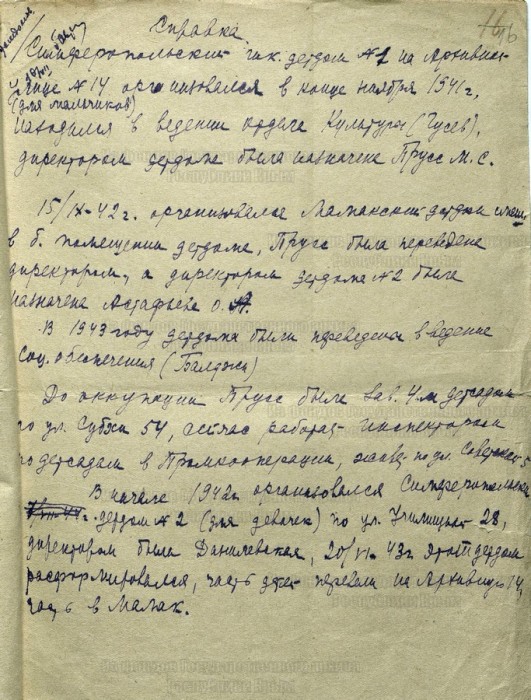 16
Справка
/Симферопольский детдом №1 на Архивной
улице №14 организовался в конце ноября 1941 г.
(для мальчиков)
находился в ведении отдела Культуры (Гусев),
директором детдома была назначена Прусс М. С.
15/IX-42 г. организовался Мамакский детдом
в б. помещении детдома, Прусс была переведена
директором, а директором детдома №2 была
назначена Астафьева О. А.
В 1943 году детдома были переведены в ведение
Соц. обеспечения (Балджи)
До оккупации Прусс была зав. 4м детсадом
по ул. Субхи 54, сейчас работает инспектором
по детсадам в Промкооперации, живет по ул. Советской
В начале 1942 г. организовался Симферопольский
детдом №2 (для девочек) по ул. Училищной 28,
директором была Данилевская, 20/VI-43 г. этот детдом
расформировался, часть детей перевели на Архивную 14,
часть в Мамак.